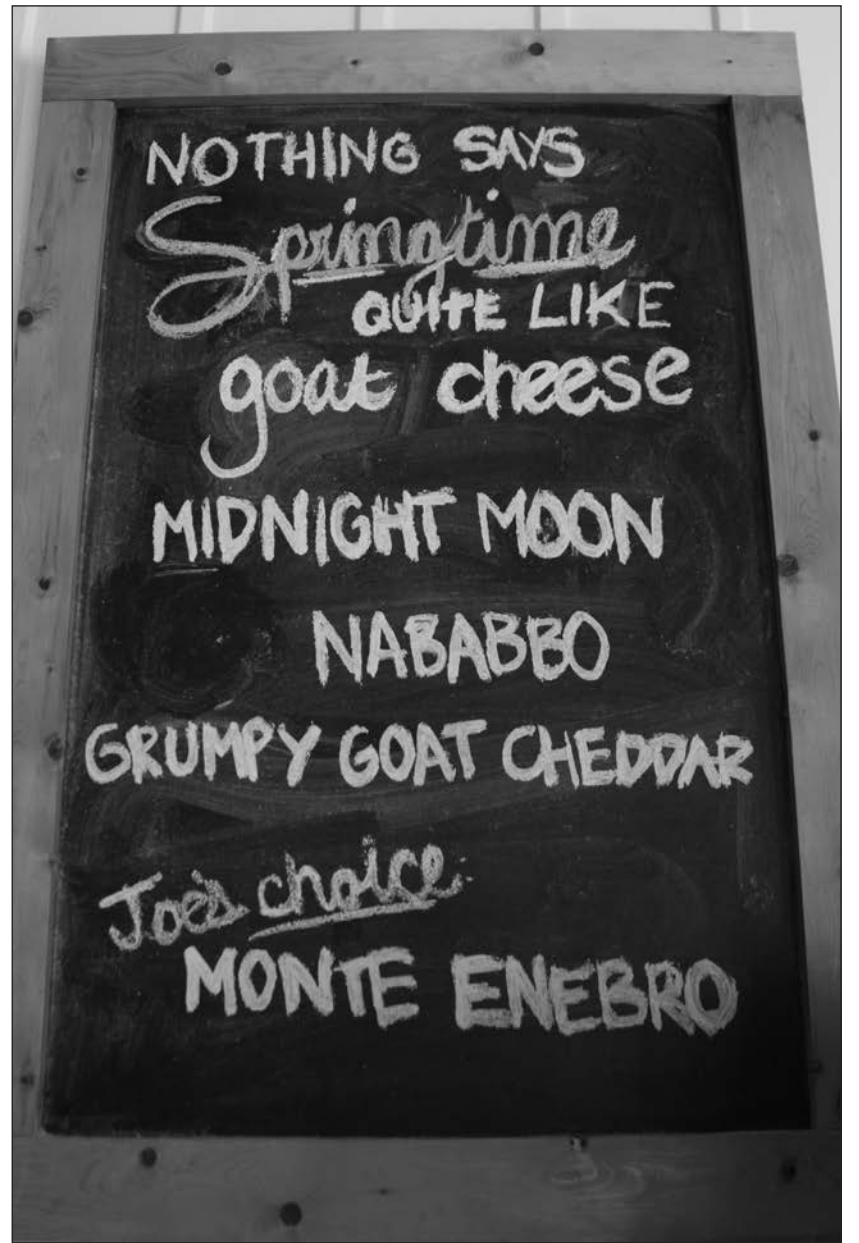 NOTHING SAYS
Springtime
QUITE LIKE
goat cheese
MIDNIGHT MOON
NABABBO
GRUMPY GOAT CHEDDAR
Joe's choice:
MONTE ENEBRO